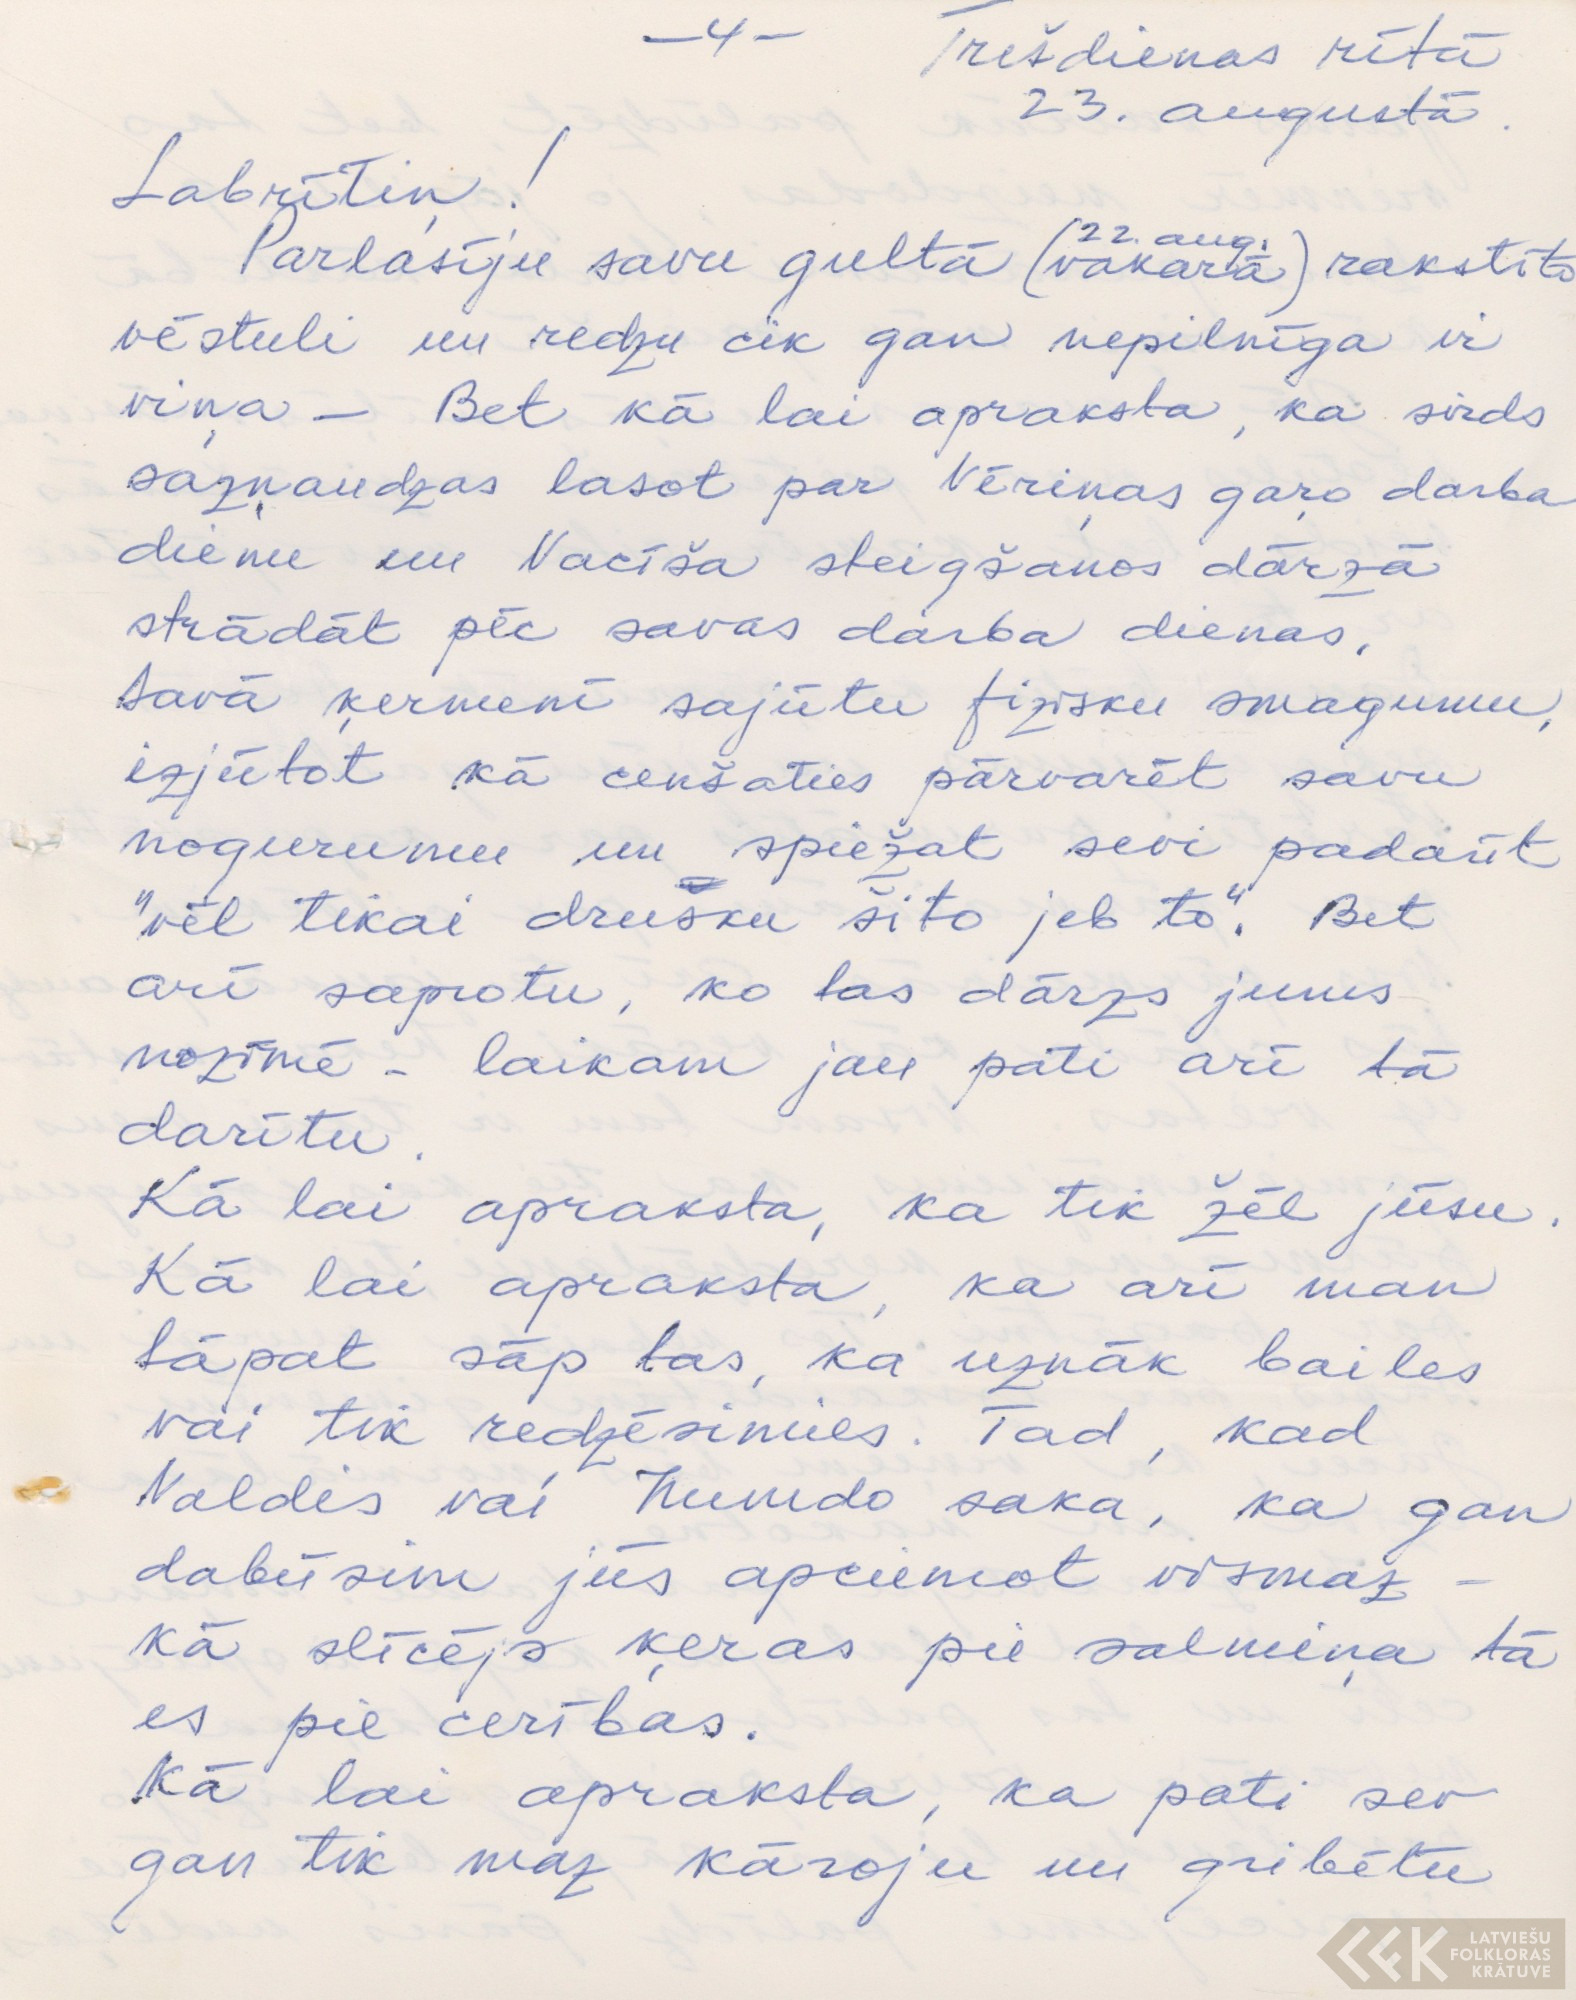 –4–
Trešdienas rītā
23. augustā.
Labrītiņ!
Pārlasīju savu gultā (22. aug. vakarā) rakstīto
vēstuli un redzu cik gan nepilnīga ir
viņa – Bet kā lai apraksta, ka sirds
sažņaudzas lasot par Vēriņas gaŗo darba
dienu un Vacīša steigšanos dārzā
strādāt pēc savas darba dienas.
Savā ķermenī sajūtu fizisku smagumu,
izjūtot kā cenšaties pārvarēt savu
nogurumu un spiežat sevi padarīt
"vēl tikai drušku šito jeb to". Bet
arī saprotu, ko tas dārzs jums
nozīmē – laikam jau pati arī tā
darītu.
Kā lai apraksta, ka tik žēl jūsu.
Kā lai apraksta, ka arī man
tāpat sāp tas, ka uznāk bailes
vai tik redzēsimies. Tad, kad
Valdis vai Nundo saka, ka gan
dabūsim jūs apciemot vismaz –
kā slīcējs ķeras pie salmiņa tā
es pie cerības.
Kā lai apraksta, ka pati sev
gan tik maz kāroju un gribētu
LATVIEŠU
FOLKLORAS
KRĀTUVE